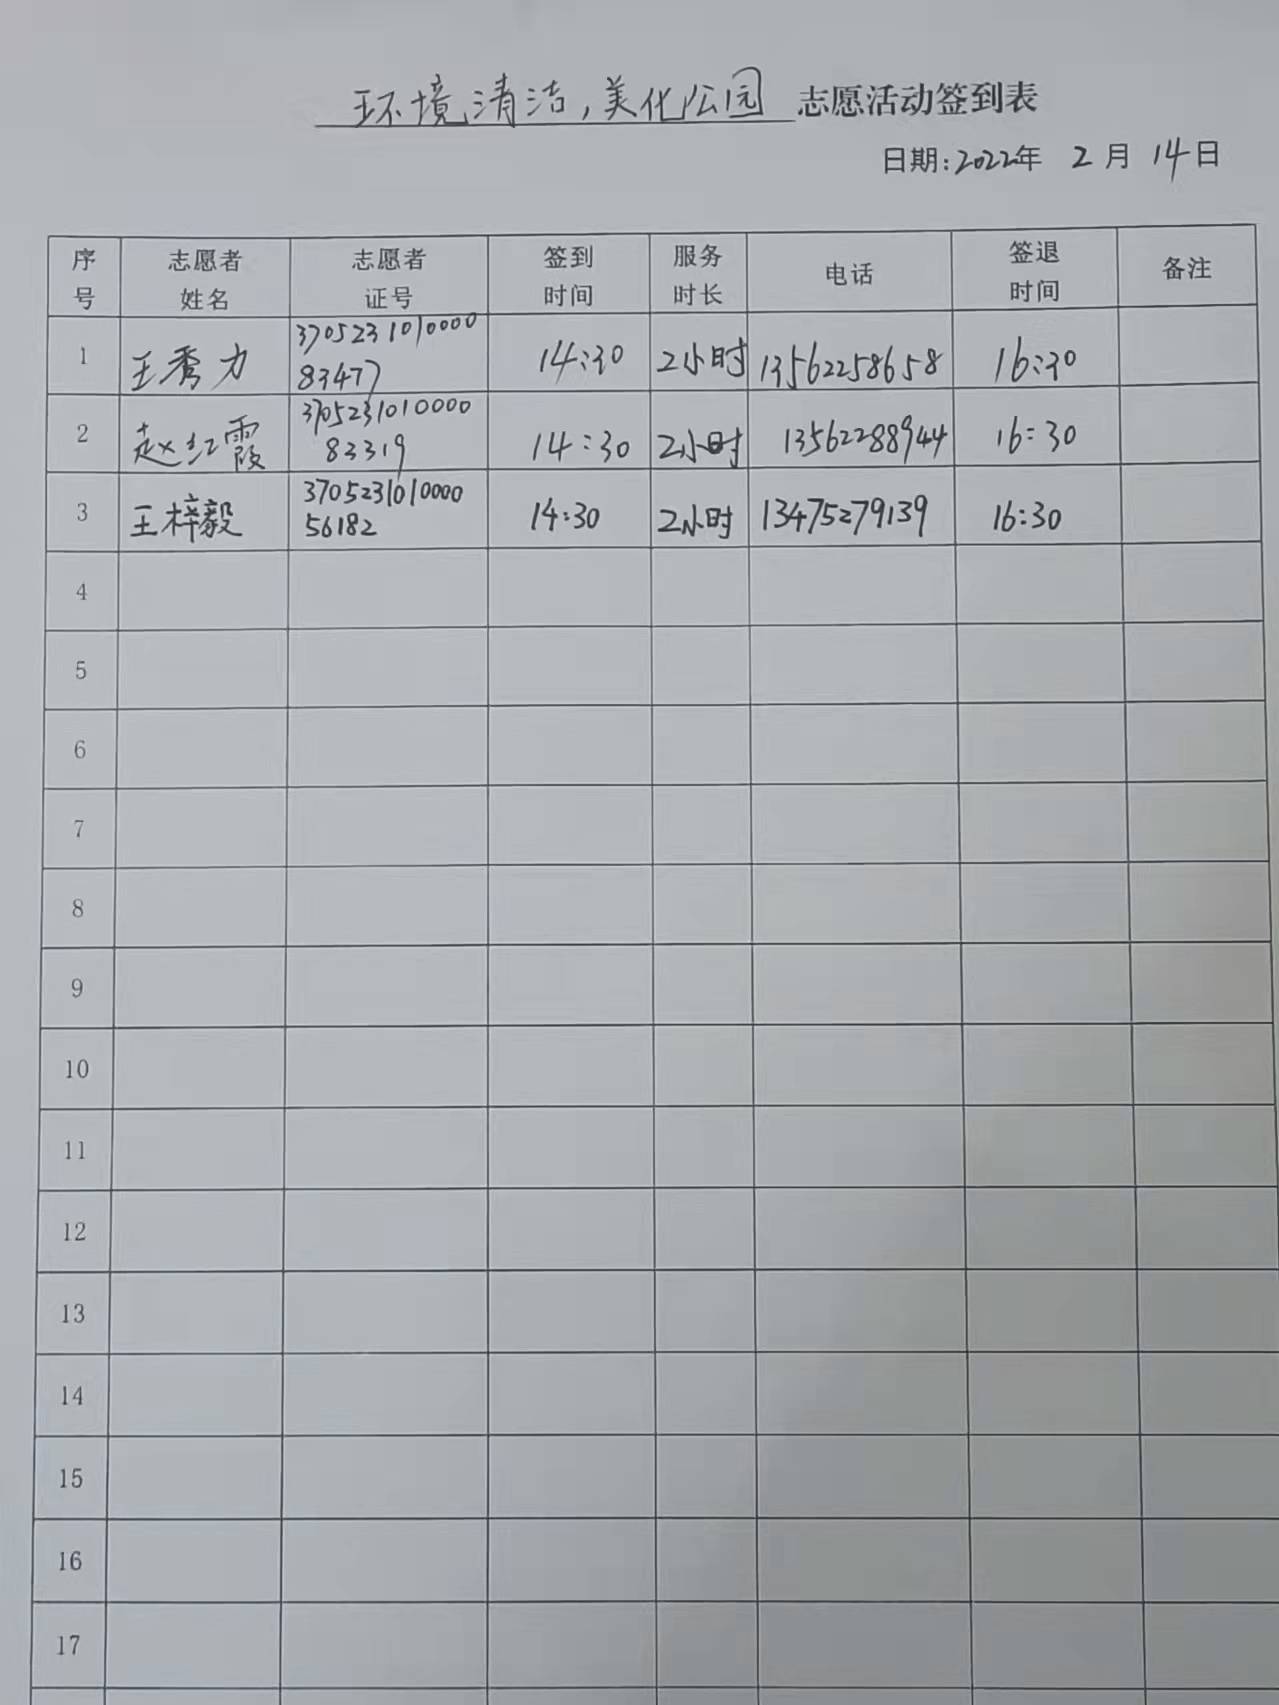 环境清洁,美化公园 志愿活动签到表
日期:2022年 2 月 14日
序号 志愿者姓名 志愿者证号 签到时间 服务时长 电话 签退时间 备注
1 王秀力 370523101000083477 14:30 2小时 13562258658 16:30
2 赵红霞 370523101000083319 14:30 2小时 13562288944 16:30
3 王梓毅 370523101000056182 14:30 2小时 13475279139 16:30
4
5
6
7
8
9
10
11
12
13
14
15
16
17